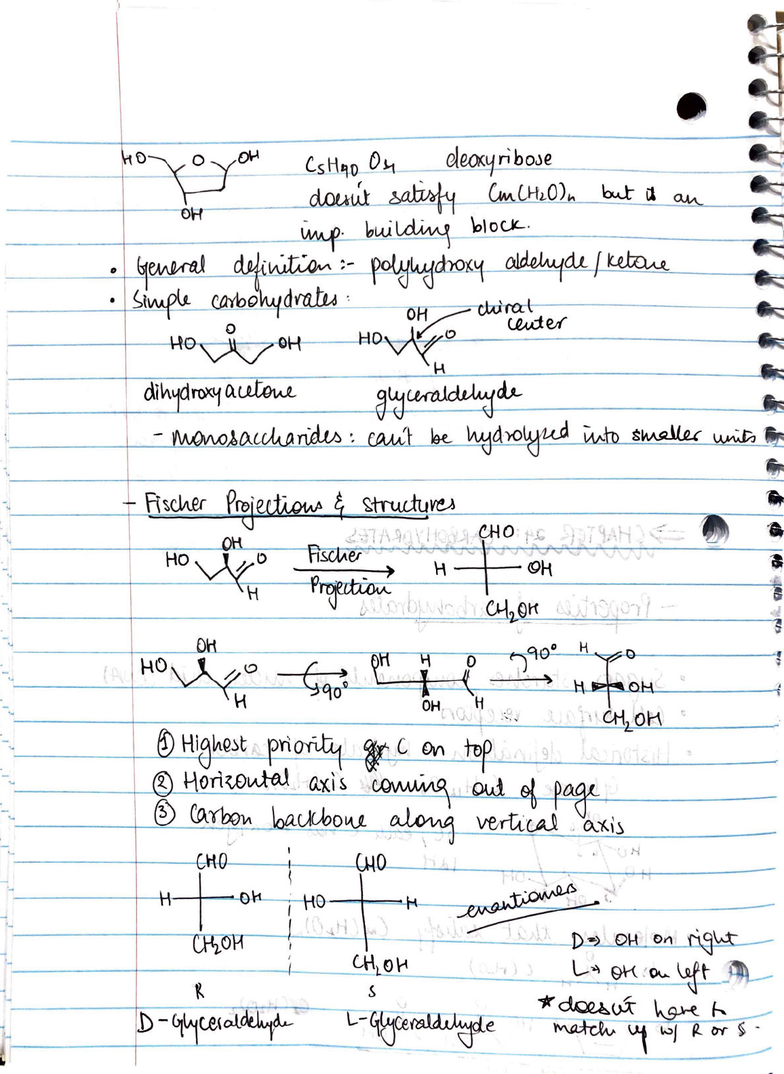 HO O OH C5H10O4 deoxyribose
OH doesn't satisfy Cm(H2O)n but is an
imp. building block.
• General definition :- polyhydroxy aldehyde/ketone
• Simple carbohydrates :
OH chiral center
HO O OH HO O H
dihydroxyacetone glyceraldehyde
- Monosaccharides : can't be hydrolyzed into smaller units
- Fischer Projections & structures
HO OH O H Fischer Projection CHO H OH CH2OH
HO OH O H 90° OH H O OH H 90° H O H OH CH2OH
① Highest priority C on top
② Horizontal axis coming out of page
③ Carbon backbone along vertical axis
CHO CHO
H OH HO H enantiomers
CH2OH CH2OH
D => OH on right
L → OH on left
R S
D-Glyceraldehyde L-Glyceraldehyde
* doesn't have to
match up w/ R or S.